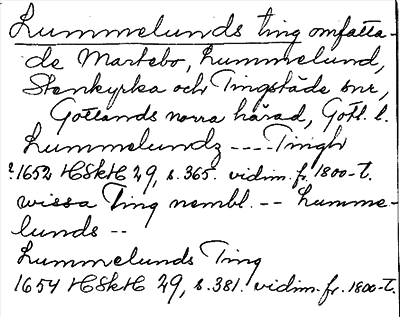 Lummelunds ting omfatta-
de Martebo, Lummelund,
Stenkyrka och Tingstäde snr,
Gotlands norra härad, Gotl. l.
Lummelundz ---- Tingh
?1652 HSkH 29, s. 365. vidim. fr. 1800-t.
wissa Ting nembl. -- Lumme-
lunds --
Lummelunds Ting
1654 HSkH 29, s. 381. vidim. fr. 1800-t.